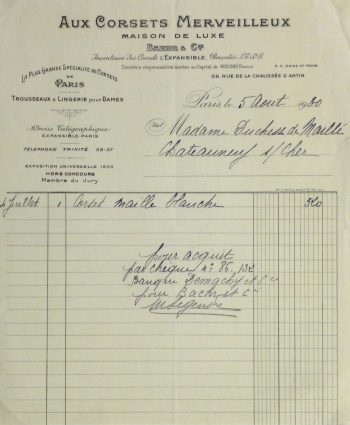 AUX CORSETS MERVEILLEUX
MAISON DE LUXE
BAEHR & Cie
Inventeurs des Corsets L'EXPANSIBLE, Brevetés S.G.D.G.
Société à responsabilité limitée au Capital de 400.000 francs
R. C. SEINE
66 RUE DE LA CHAUSSÉE D'ANTIN
LA PLUS GRANDE SPÉCIALITÉ DE CORSETS
DE
PARIS
TROUSSEAUX & LINGERIE pour DAMES
Adresse Télégraphique
EXPANSIBLE-PARIS
TÉLÉPHONE TRINITÉ 08-57
EXPOSITION UNIVERSELLE 1900
HORS CONCOURS
Membre du Jury
Paris le 5 Aout 1930
Doit
Madame Duchesse de Maillé
Chateauneuf s/ Cher
4 Juillet 1 Corset maille blanche 320
pour acquit
par chèque n° 86.132
Banque Demachy & Cie
pour Baehr et Cie